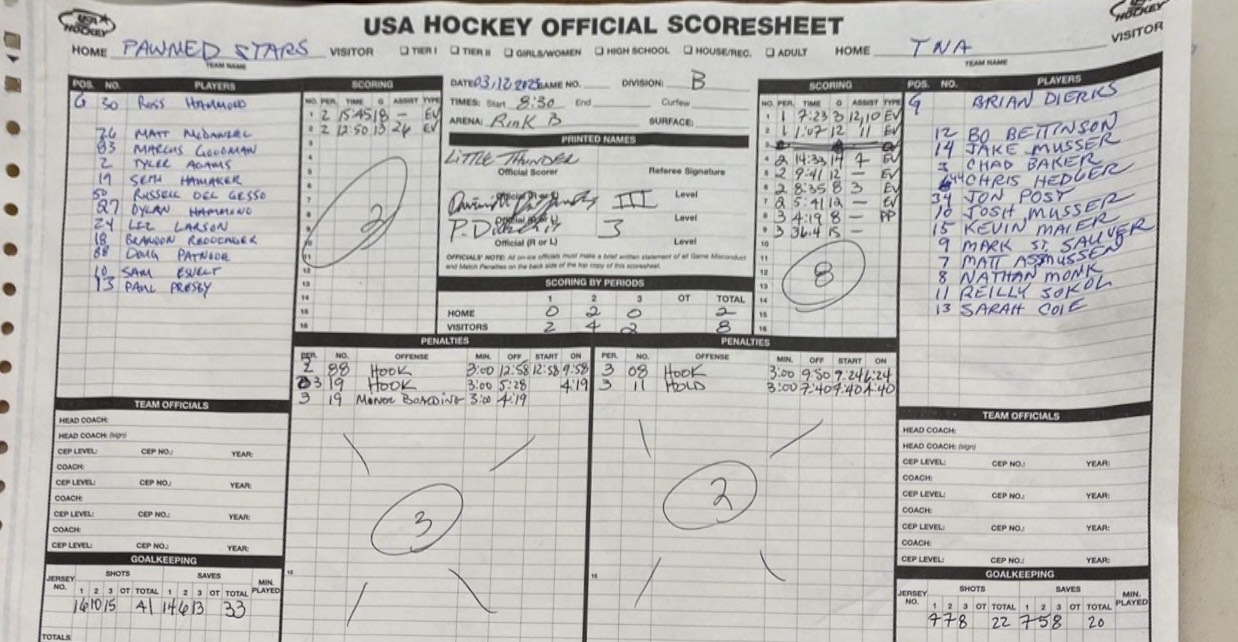 USA HOCKEY
USA HOCKEY OFFICIAL SCORESHEET
HOCKEY
HOME PAWNED STARS VISITOR ☐ TIER I ☐ TIER II ☐ GIRLS/WOMEN ☐ HIGH SCHOOL ☐ HOUSE/REC. ☐ ADULT HOME TNA VISITOR
TEAM NAME
TEAM NAME
POS. NO. PLAYERS
G 30 ROSS HAMMOND
26 MATT McDANIEL
83 MARCUS GOODMAN
2 TYLER ADAMS
19 SETH HAMAKER
50 RUSSELL DEL GESSO
27 DYLAN HAMMOND
24 LIZ LARSON
18 BRANDON
88 DOUG PATNODE
10 SAM
13 PAUL PRESBY
SCORING
NO. PER. TIME G ASSIST TYPE
1 2 15:45 18 - EV
2 2 12:50 13 26 EV
3
4
5
6
7
8
9
10
11
12
13
14
15
16
2
DATE 03/12/2025 GAME NO. DIVISION: B
TIMES: Start 8:30 End Curfew
ARENA: RINK B SURFACE:
PRINTED NAMES
LITTLE THUNDER
Official Scorer Referee Signature
III
Official (R or L) Level
Official (R or L) Level
3
Official (R or L) Level
OFFICIALS' NOTE: All on-ice officials must make a brief written statement of all Game Misconduct
and Match Penalties on the back side of the top copy of this scoresheet.
SCORING BY PERIODS
1 2 3 OT TOTAL
HOME 0 2 0 2
VISITORS 2 4 2 8
SCORING
NO. PER. TIME G ASSIST TYPE
1 1 7:23 3 12,10 EV
2 1 1:07 12 11 EV
4 2 14:33 14 7 EV
5 2 9:41 12 - EV
6 2 8:35 8 3 EV
7 2 5:41 12 - EV
8 3 4:19 8 - PP
9 3 36.4 15 -
10
11
12
13
14
15
16
8
POS. NO. PLAYERS
G BRIAN DIERKS
12 BO BETTINSON
14 JAKE MUSSER
3 CHAD BAKER
44 CHRIS HEDGER
34 JON POST
10 JOSH MUSSER
15 KEVIN MAIER
9 MARK ST. SAUVER
7 MATT ASMUSSEN
8 NATHAN MONK
11 REILLY SOKOL
13 SARAH COIE
PENALTIES
PER. NO. OFFENSE MIN. OFF START ON
2 88 HOOK 3:00 12:58 12:58 9:58
3 19 HOOK 3:00 5:28 4:19
3 19 MINOR BOARDING 3:00 4:19
3
15
PENALTIES
PER. NO. OFFENSE MIN. OFF START ON
3 08 HOOK 3:00 9:50 9:24 6:24
3 11 HOLD 3:00 7:40 7:40 4:40
2
15
TEAM OFFICIALS
HEAD COACH:
HEAD COACH: (sign)
CEP LEVEL: CEP NO.: YEAR:
COACH:
CEP LEVEL: CEP NO.: YEAR:
COACH:
CEP LEVEL: CEP NO.: YEAR:
COACH:
CEP LEVEL: CEP NO.: YEAR:
GOALKEEPING
JERSEY NO. SHOTS SAVES MIN. PLAYED
1 2 3 OT TOTAL 1 2 3 OT TOTAL
16 10 15 41 14 6 13 33
TOTALS
TEAM OFFICIALS
HEAD COACH:
HEAD COACH: (sign)
CEP LEVEL: CEP NO.: YEAR:
COACH:
CEP LEVEL: CEP NO.: YEAR:
COACH:
CEP LEVEL: CEP NO.: YEAR:
COACH:
CEP LEVEL: CEP NO.: YEAR:
GOALKEEPING
JERSEY NO. SHOTS SAVES MIN. PLAYED
1 2 3 OT TOTAL 1 2 3 OT TOTAL
7 7 8 22 7 5 8 20